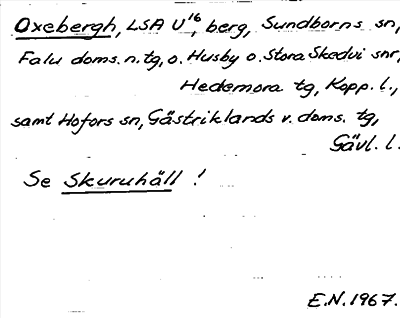 Oxebergh, LSA U¹⁶, berg, Sundborns sn,
Falu doms. n. tg, o. Husby o. Stora Skedvi snr,
Hedemora tg, Kopp. l.,
samt Hofors sn, Gästriklands v. doms. tg,
Gävl. l.
Se Skuruhäll !
E.N. 1967.